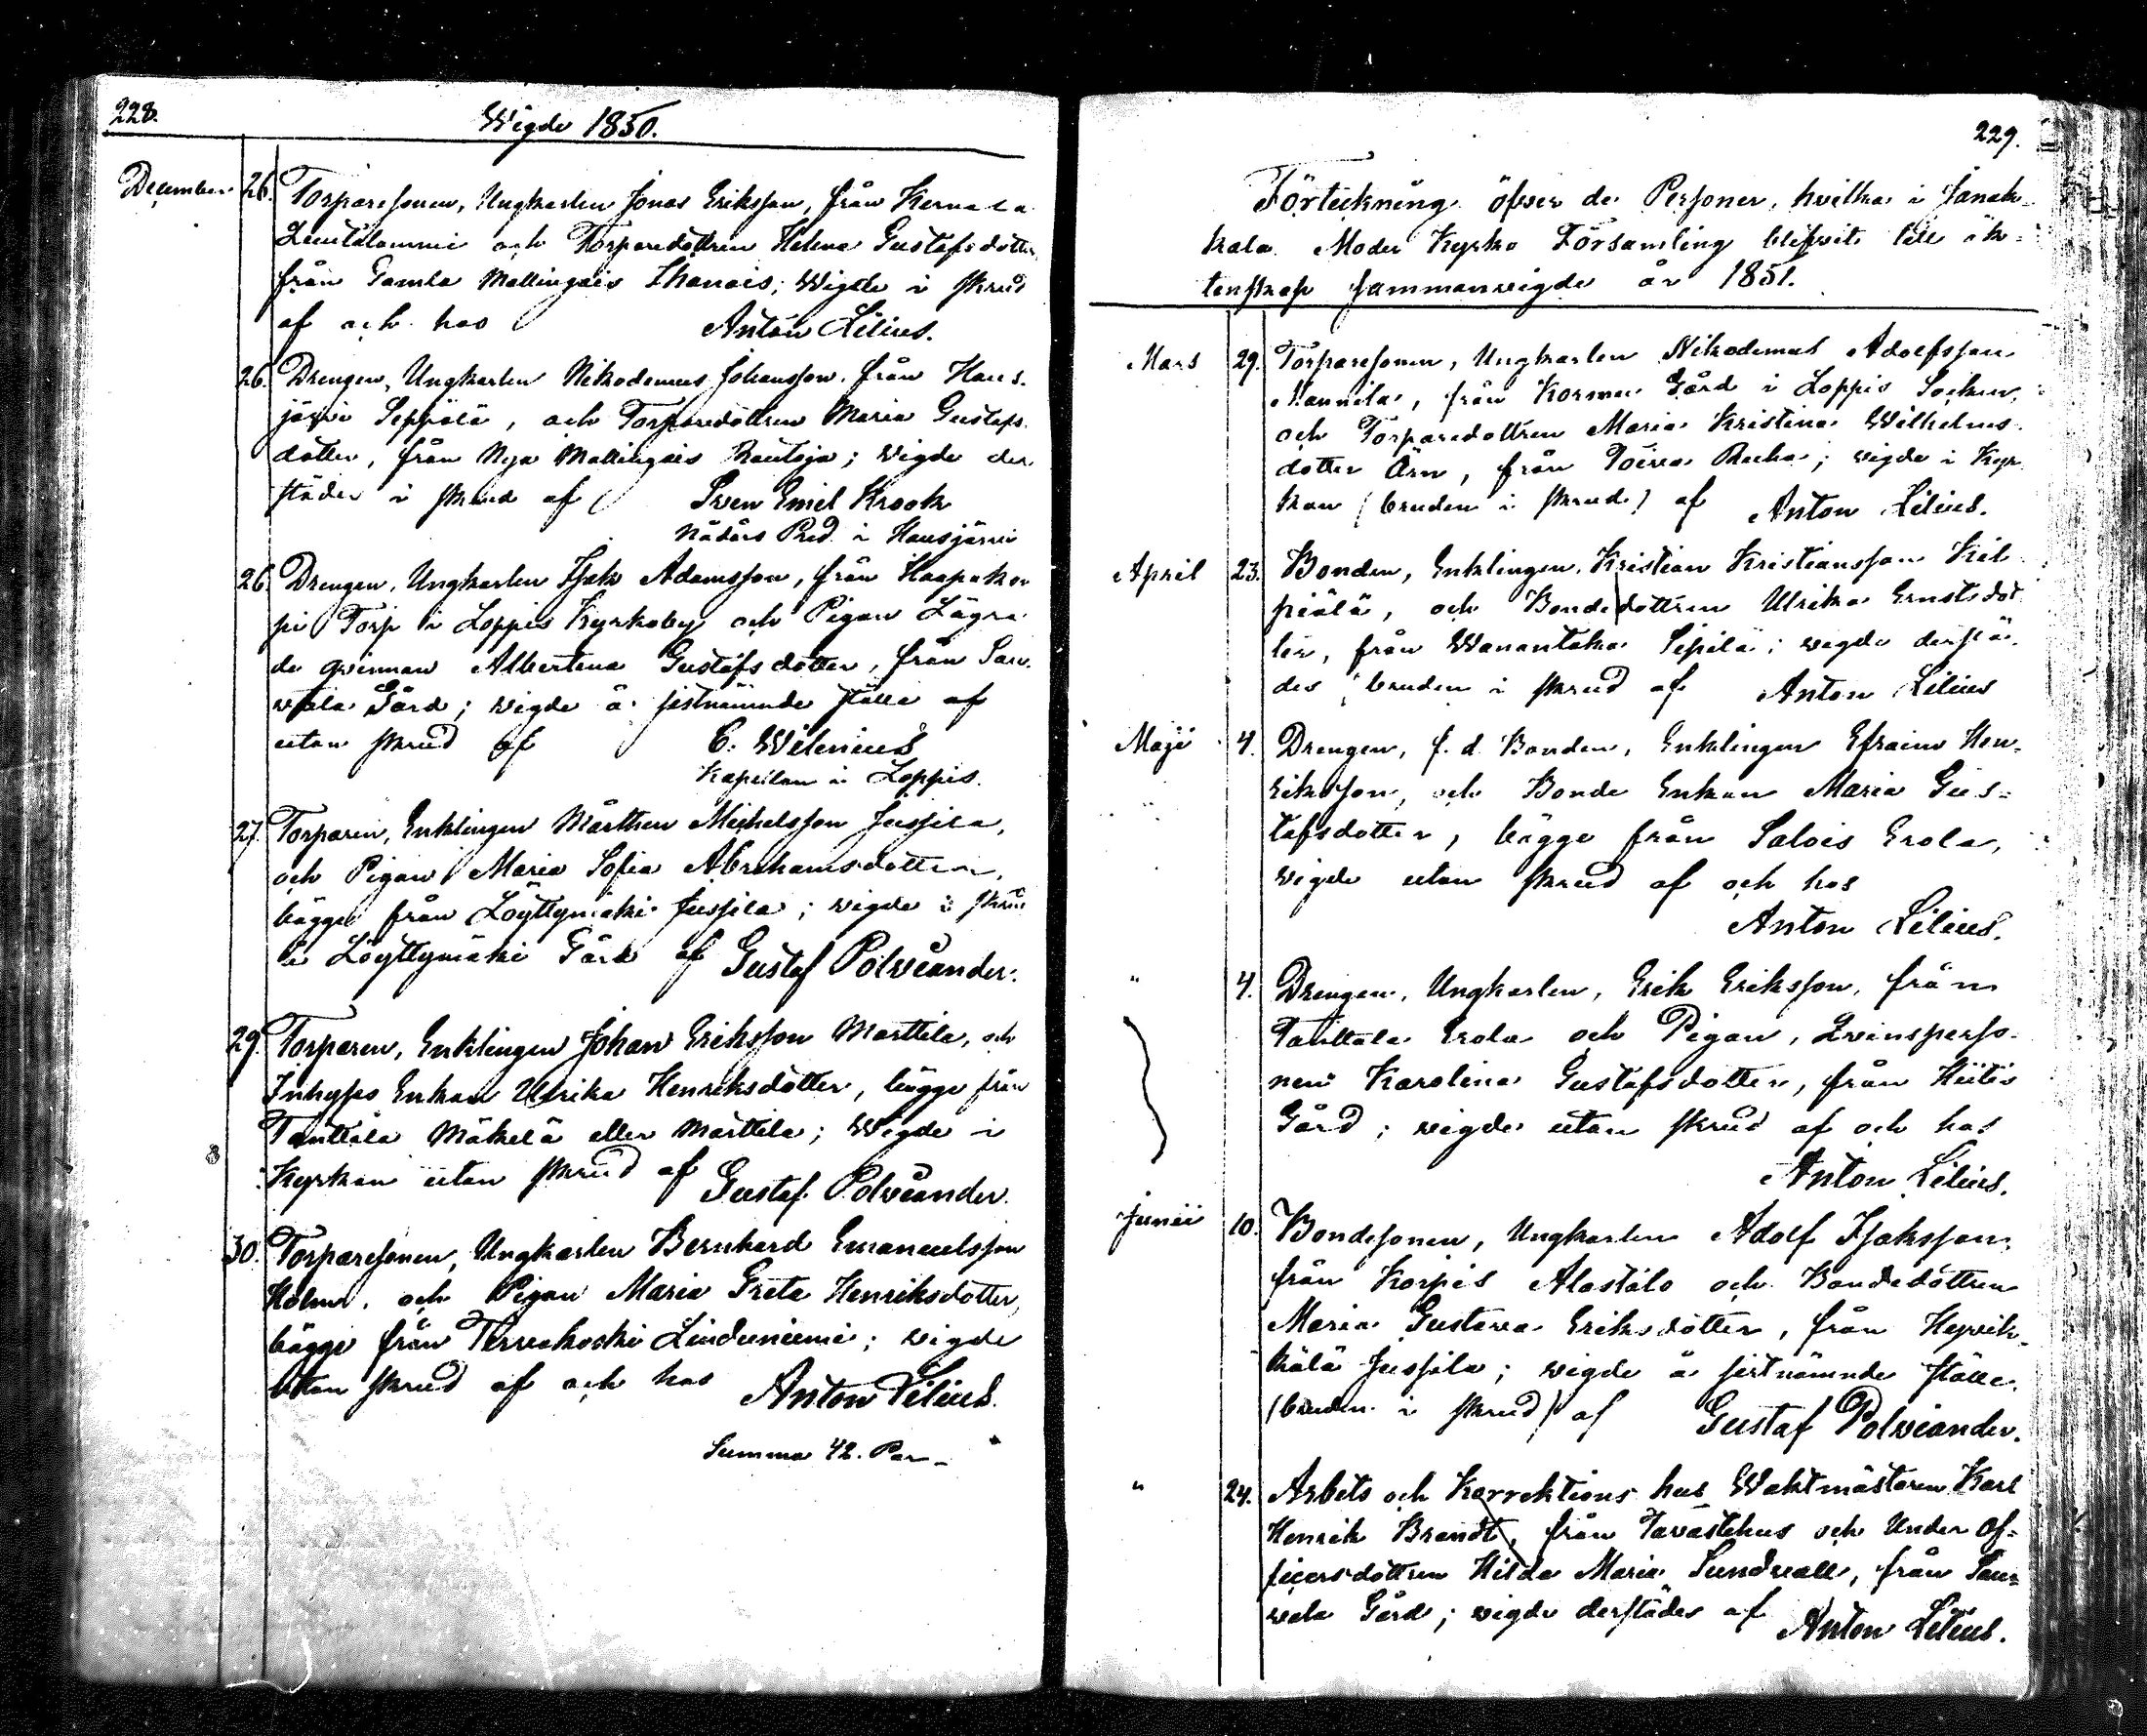 228.
Wigde 1850.
December 26. Torparesonen, Ungkarlen Jonas Eriksson, från Kernala
Luutalammi och Torparedottren Helena Gustafsdotter
från Gamla Mallingais Ihanais; Wigde i skrud
af och hos Anton Lilius.
26. Drengen, Ungkarlen Nikodemus Johansson från Haus-
järvi Seppälä, och Torparedottren Maria Gustafs
dotter, från Nya Mallingais Rautoja; wigde der
städes i skrud af Sven Emil Krook
Nådårs Pred. i Hausjärvi
26. Drengen, Ungkarlen Isak Adamsson, från Haapako
pi Torp i Loppis Kyrkoby och Pigan Lägra
de qvinnan Albertina Gustafsdotter, från Sau-
vala Gård; wigde å sistnämnde ställe af
utan skrud af C. Wilenius
Kapellan i Loppis.
27. Torparen, Enklingen Mårthen Michelsson Jussila,
och Pigan Maria Sofia Abrahamsdotter,
bägge från Löyttymäki Jussila; wigde i skrud
å Löyttymäki Gård af Gustaf Polviander.
29. Torparen, Enklingen Johan Eriksson Marttila, och
Inhyses Enkan Ulrika Henriksdotter, bägge från
Tanttala Mäkelä eller Marttila; Wigde i
Kyrkan utan skrud af Gustaf Polviander.
30. Torparesonen, Ungkarlen Bernhard Emanuelsson
Holm, och Pigan Maria Greta Henriksdotter,
bägge från Tervakoski Linduniemi; wigde
utan skrud af och hos Anton Lilius.
Summa 42. Par
229.
Förteckning öfver de Personer, hvilka i Janak-
kala Moder Kyrko Församling blifvit till äk-
tenskap sammanvigde år 1851.
Mars 29. Torparesonen, Ungkarlen Nikodemus Adolfsson
Mannila, från Kormu Gård i Loppis Socken,
och Torparedottren Maria Kristina Wilhelms-
dotter Örn, från Toivo Ruha; wigde i Kyr
kan (bruden i skrud) af Anton Lilius.
April 23. Bonden, Enklingen, Kristian Kristiansson Kil
piälä, och Bondedottren Ulrika Ernstdot
ter, från Wanantaka Sipilä; wigde derstä
des, bruden i skrud af Anton Lilius
Maji 4. Drengen, f. d. Bonden, Enklingen Efraim Hen-
riksson, och Bonde Enkan Maria Gus-
tafsdotter, bägge från Salois Erola,
wigde utan skrud af och hos
Anton Lilius.
" 4. Drengen, Ungkarlen, Erik Eriksson, från
Tanttala Erola och Pigan, Qvinsperso-
nen Karolina Gustafsdotter, från Hiitis
Gård; wigde utan skrud af och hos
Anton Lilius.
Junii 10. Bondesonen, Ungkarlen Adolf Isaksson,
från Korpis Alastalo och Bondedottren
Maria Gustava Eriksdotter, från Hyvik-
kälä Jussila; wigde å sistnämnde ställe.
(bruden i skrud) af Gustaf Polviander.
" 24. Arbets och Korrektions hus Waktmästaren Karl
Henrik Brandt, från Tavastehus och Under Of-
ficersdottren Hilda Maria Sundvall, från Sau-
vala Gård; wigde derstädes af Anton Lilius.